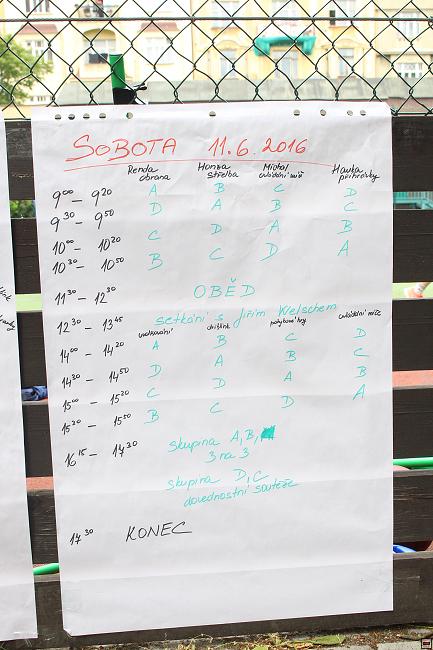 SOBOTA 11.6.2016
Renda Honza Michal Hanka
obrana střelba ovládání míč přihrávky
9⁰⁰ – 9²⁰ A B C D
9³⁰ – 9⁵⁰ D A B C
10⁰⁰ – 10²⁰ C D A B
10³⁰ – 10⁵⁰ B C D A
11³⁰ – 12³⁰ OBĚD
12³⁰ – 13⁴⁵ setkání s Jiřím Welschem
pohybové hry ovládání míče
14⁰⁰ – 14²⁰ A B C D
14³⁰ – 14⁵⁰ D A B C
15⁰⁰ – 15²⁰ C D A B
15³⁰ – 15⁵⁰ B C D A
16¹⁵ – 17³⁰ skupina A, B,
3 na 3
skupina D, C
dovednostní soutěže
17³⁰ KONEC